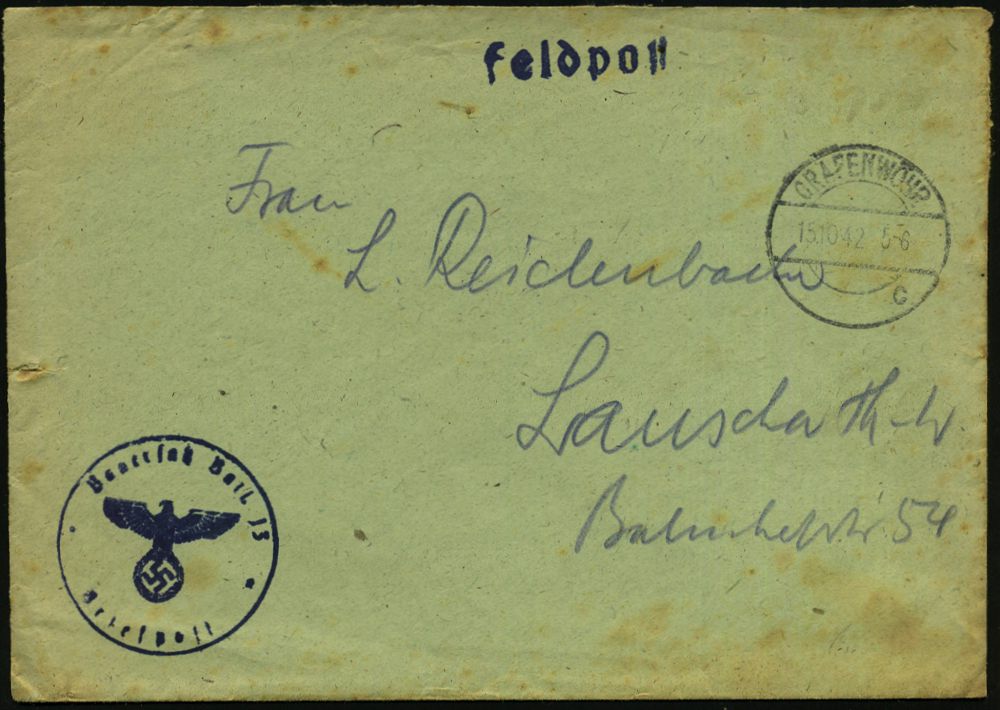 Feldpost
GRAFENWÖHR
15.10.42 5-6
c
Frau
L. Reichenbach
Lauscha Th-W.
Bahnhofstr 54
Bauersatz Batl. 13
Briefpost